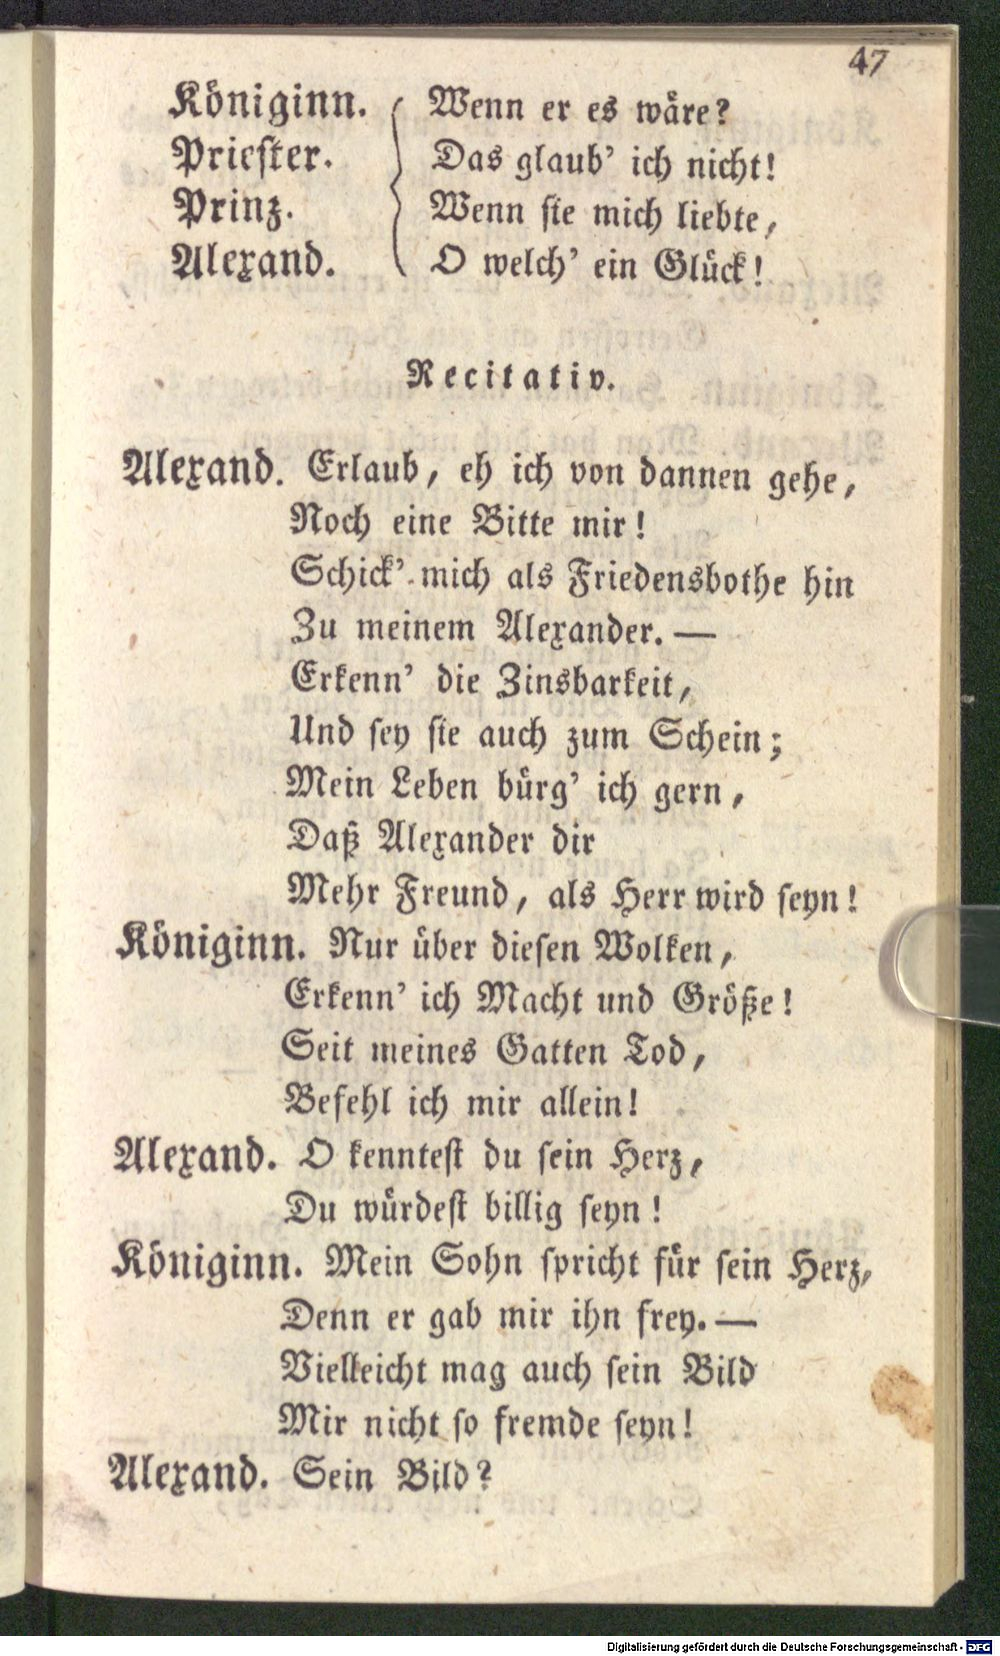 47
Königinn. Wenn er es wäre?
Priester. Das glaub' ich nicht!
Prinz. Wenn sie mich liebte,
Alexand. O welch' ein Glück!
Recitativ.
Alexand. Erlaub, eh ich von dannen gehe,
Noch eine Bitte mir!
Schick' mich als Friedensbothe hin
Zu meinem Alexander. —
Erkenn' die Zinsbarkeit,
Und sey sie auch zum Schein;
Mein Leben bürg' ich gern,
Daß Alexander dir
Mehr Freund, als Herr wird seyn!
Königinn. Nur über diesen Wolken,
Erkenn' ich Macht und Größe!
Seit meines Gatten Tod,
Befehl ich mir allein!
Alexand. O kenntest du sein Herz,
Du würdest billig seyn!
Königinn. Mein Sohn spricht für sein Herz,
Denn er gab mir ihn frey. —
Vielleicht mag auch sein Bild
Mir nicht so fremde seyn!
Alexand. Sein Bild?
Digitalisierung gefördert durch die Deutsche Forschungsgemeinschaft - DFG